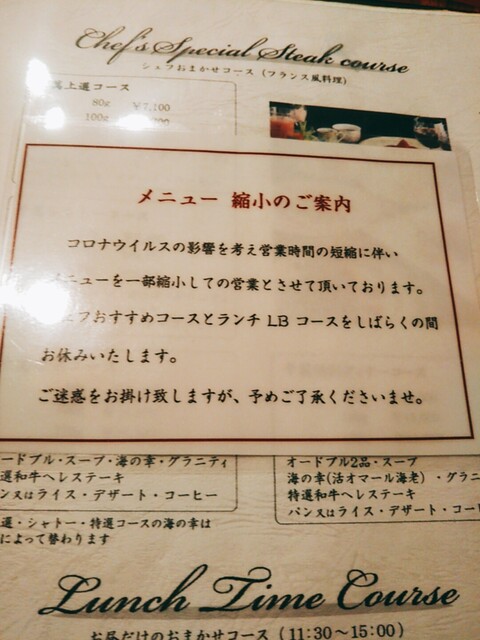 Chef's Special Steak course
シェフおまかせコース (フランス風料理)
上選コース
80g ¥7,100
100g
メニュー 縮小のご案内
コロナウイルスの影響を考え営業時間の短縮に伴い
メニューを一部縮小しての営業とさせて頂いております。
シェフおすすめコースとランチ LB コースをしばらくの間
お休みいたします。
ご迷惑をお掛け致しますが、予めご了承くださいませ。
ードブル・スープ・海の幸・グラニティ
選和牛ヘレステーキ
ン又はライス・デザート・コーヒー
選・シャトー・特選コースの海の幸は
によって替わります
オードブル2品・スープ
海の幸(活オマール海老)・グラニ
特選和牛ヘレステーキ
パン又はライス・デザート・コー
Lunch Time Course
お昼だけのおまかせコース (11:30～15:00)